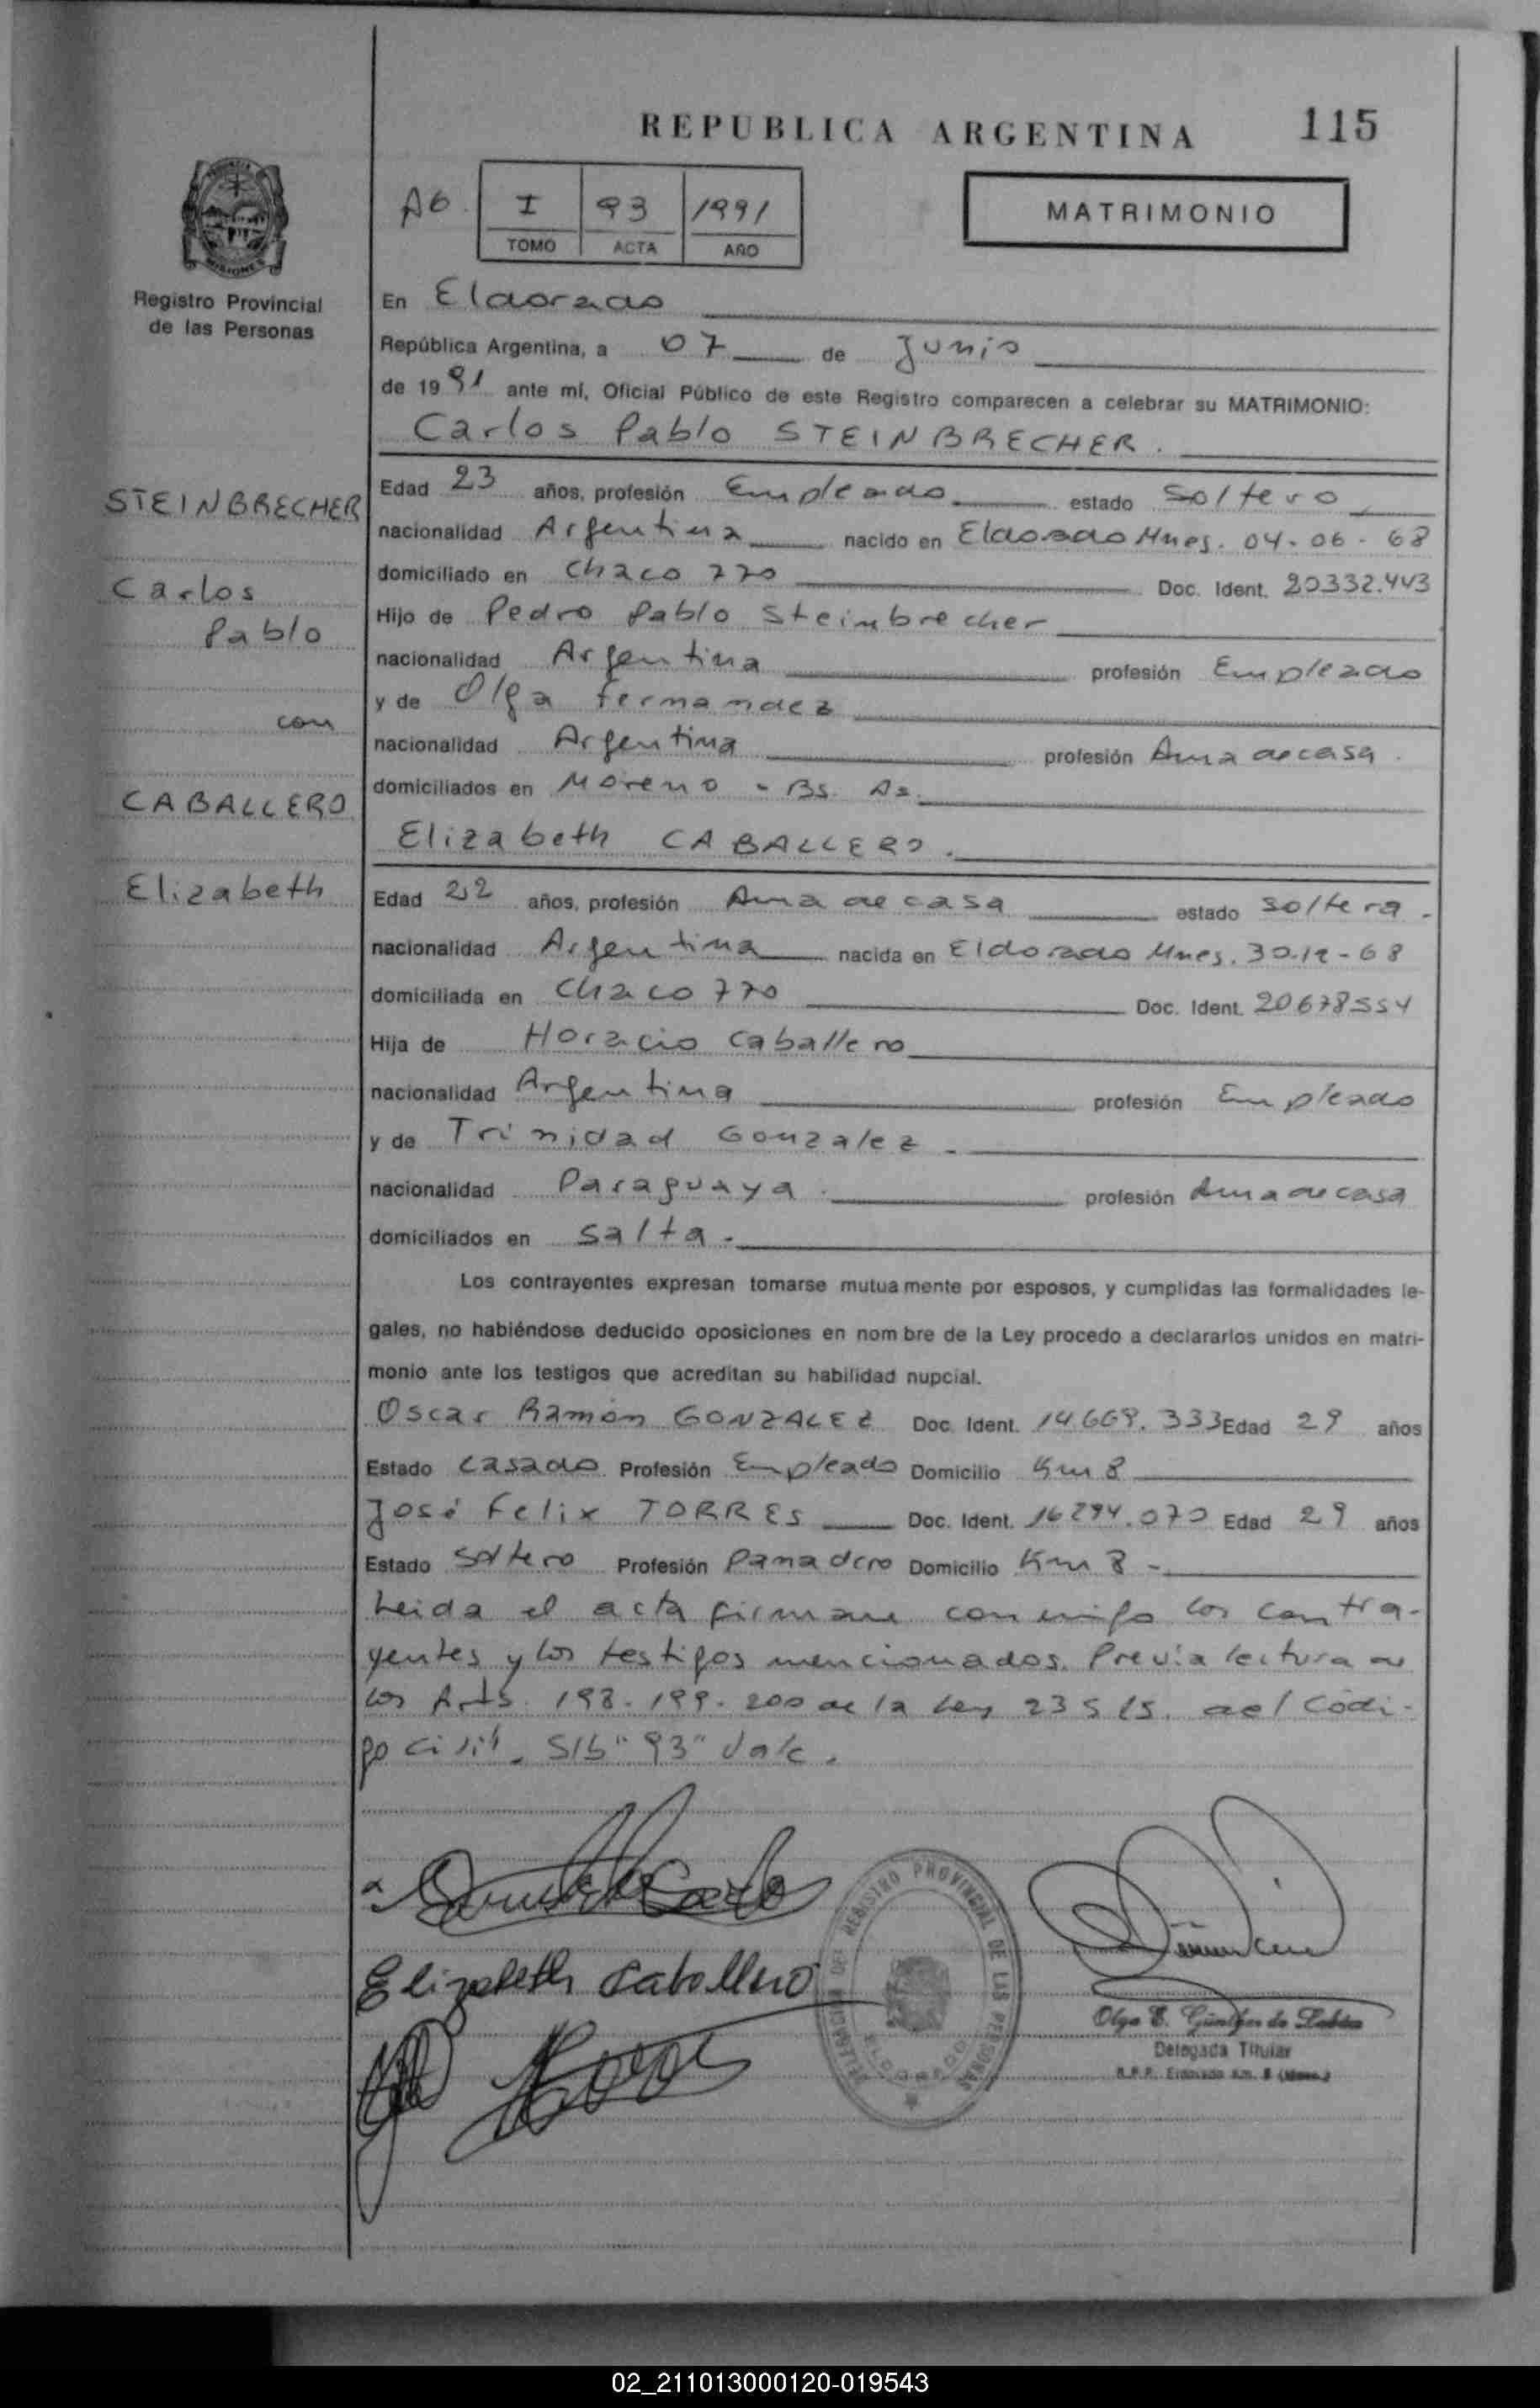 REPUBLICA ARGENTINA 115
A6. I 93 1991
TOMO ACTA AÑO
MATRIMONIO
Registro Provincial
de las Personas
En Eldorado
República Argentina, a 07 de Junio
de 19 91 ante mí, Oficial Público de este Registro comparecen a celebrar su MATRIMONIO:
Carlos Pablo STEINBRECHER.
STEINBRECHER
Carlos
Pablo
con
CABALLERO
Elizabeth
Edad 23 años, profesión Empleado estado Soltero
nacionalidad Argentina nacido en Eldorado Mnes. 04-06-68
domiciliado en Chaco 770 Doc. Ident. 20332.443
Hijo de Pedro Pablo Steinbrecher
nacionalidad Argentina profesión Empleado
y de Olga Fernandez
nacionalidad Argentina profesión Ama de casa.
domiciliados en Moreno - Bs. As.
Elizabeth CABALLERO.
Edad 22 años, profesión Ama de casa estado soltera.
nacionalidad Argentina nacida en Eldorado Mnes. 30-12-68
domiciliada en Chaco 770 Doc. Ident. 20678554
Hija de Horacio Caballero
nacionalidad Argentina profesión Empleado
y de Trinidad Gonzalez.
nacionalidad Paraguaya. profesión Ama de casa
domiciliados en Salta.
Los contrayentes expresan tomarse mutuamente por esposos, y cumplidas las formalidades le-
gales, no habiéndose deducido oposiciones en nombre de la Ley procedo a declararlos unidos en matri-
monio ante los testigos que acreditan su habilidad nupcial.
Oscar Ramón GONZALEZ Doc. Ident. 14.669.333 Edad 29 años
Estado Casado Profesión Empleado Domicilio Km 8
José Felix TORRES Doc. Ident. 16294.070 Edad 29 años
Estado Soltero Profesión Panadero Domicilio Km 8 -
Leida el acta firman conmigo los contra-
yentes y los testigos mencionados. Previa lectura de
los Arts. 198-199-200 de la Ley 23515. del Codi-
go civil. S/b "93" Vale.
Elizabeth Caballero
DELEGACION DEL REGISTRO PROVINCIAL DE LAS PERSONAS
ELDORADO
Olga E. Günther de
Delegada Titular
R.P.P. Eldorado Km. 8 (Mnes.)
02_211013000120-019543